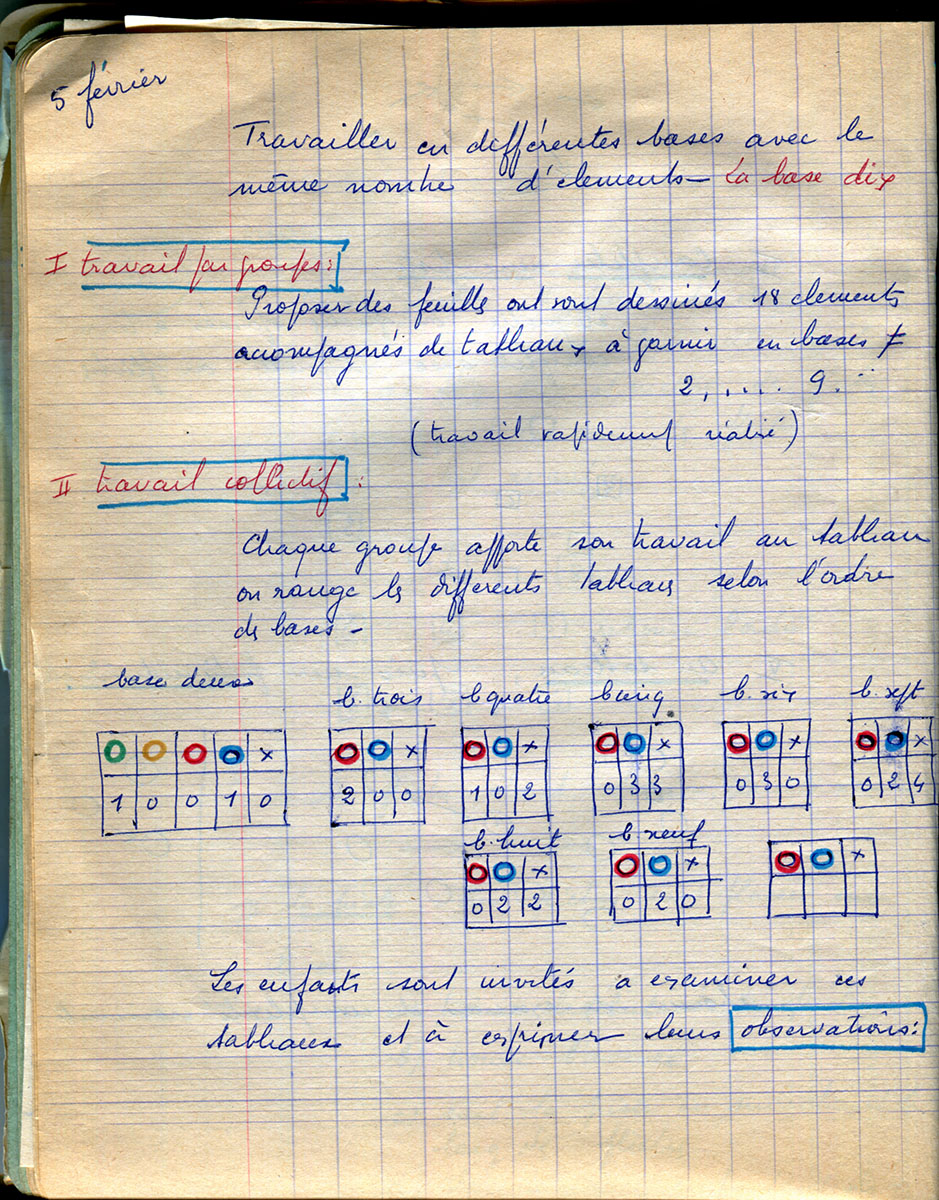 5 février
Travailler en différentes bases avec le
même nombre d'elements - La base dix
I travail par groupes:
Proposer des feuilles ont sont dessinés 18 elements
acompagnés de tableaux à garnir en bases ≠
2, .... 9...
(travail rapidement réalisé)
II travail collectif :
Chaque groupe apporte son travail au tableau
on range ls differents tableaux selon l'ordre
ds bases -
base deux b. trois b quatre b cinq b. six b. sept
x x x x x x
1 0 0 1 0 2 0 0 1 0 2 0 3 3 0 3 0 0 2 4
b. huit b. neuf
x x x
0 2 2 0 2 0
Les enfants sont invités a examiner ces
tableaux et à exprimer leurs observations: